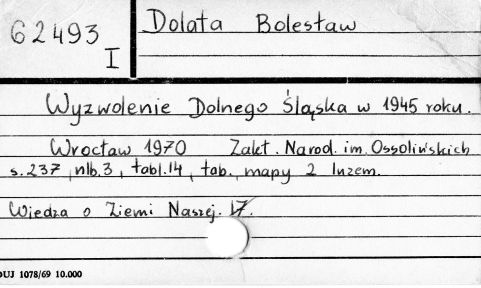 62493
I
Dolata Bolesław
Wyzwolenie Dolnego Śląska w 1945 roku.
Wrocław 1970 Zakł. Narod. im. Ossolińskich
s. 237, nlb. 3, tabl. 14, tab., mapy 2 luzem.
Wiedza o Ziemi Naszej. 17.
DUJ 1078/69 10.000